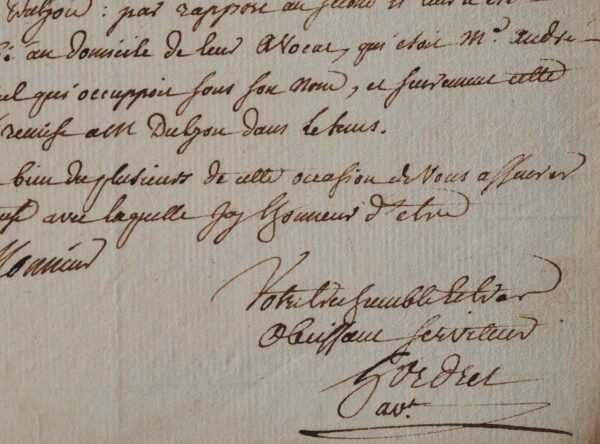 Dulyon : par rapport au second il leur a été
au domicile de leur avocat, qui étoit Mr. andré
qui occuppoit sous son nom, et surement cette
remise a M Dulyon dans le tems.
bien du plaisir de cette occasion de vous assurer
avec laquelle Jay lhonneur d'etre
Monsieur
Votre tres humble et tres
obeissant serviteur
avt.